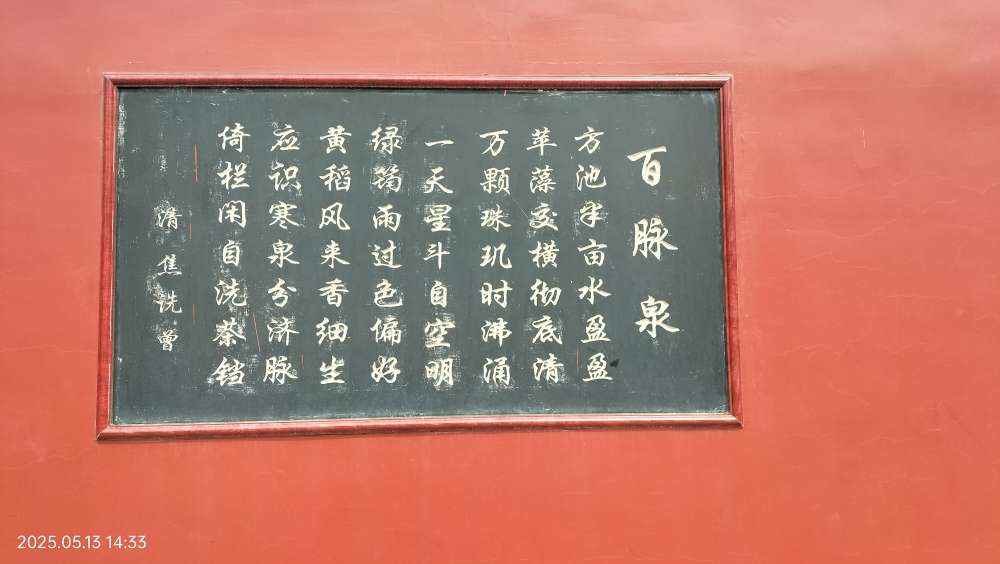 百脉泉
方池半亩水盈盈
苹藻交横彻底清
万颗珠玑时沸涌
一天星斗自空明
绿筠雨过色偏好
黄稻风来香细生
应识寒泉分济脉
倚栏闲自洗茶铛
清 焦洗曾
2025.05.13 14:33